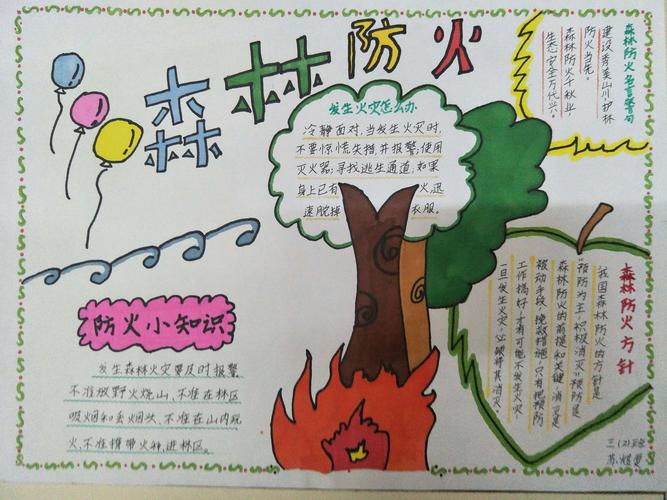 森林防火
发生火灾怎么办
冷静面对,当发生火灾时,
不要惊慌失措,并报警;使用
灭火器;寻找逃生通道;如果
身上已有火,迅
速脱掉衣服。
森林防火名言警句
建设秀美山川,护林
防火当先。
森林防火千秋业,
生态安全万代兴。
防火小知识
发生森林火灾要及时报警,
不准放野火烧山,不准在林区
吸烟和丢烟头,不准在山内玩
火,不准携带火种进林区。
森林防火方针
我国森林防火的方针是
“预防为主,积极消灭”预防是
森林防火的前提和关键,消灭是
被动手段、挽救措施,只有把预防
工作搞好,才有可能不发生火灾
一旦发生火灾,必须将其消灭。
三(2)班
苏